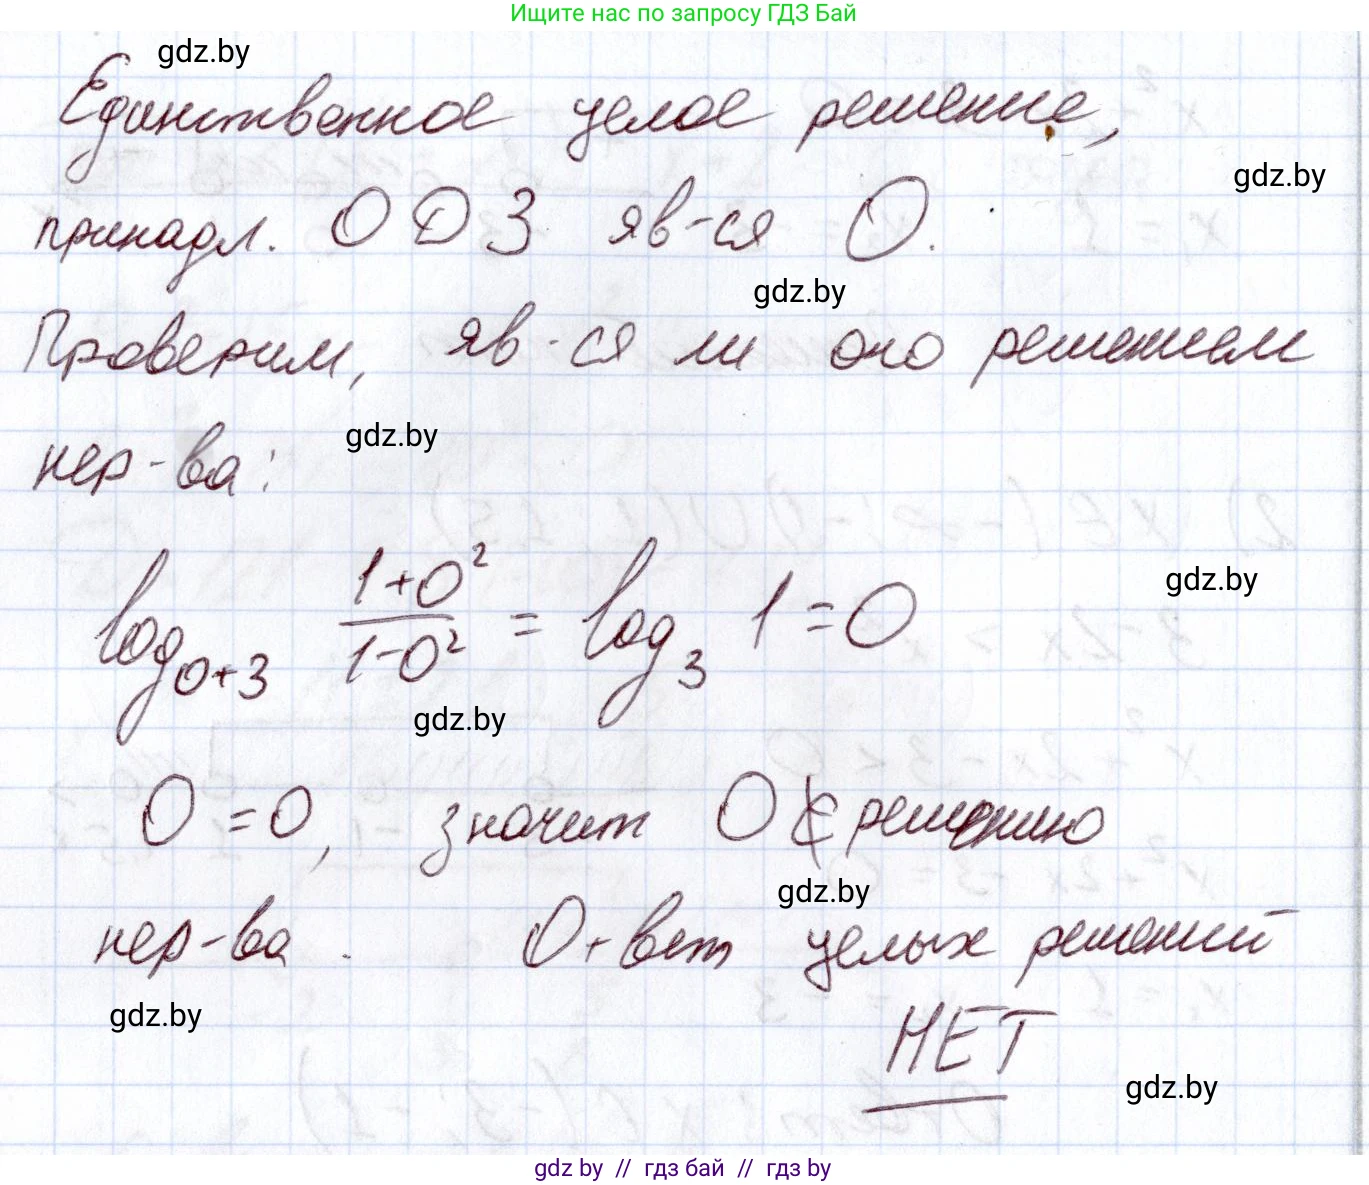 Ищите нас по запросу ГДЗ Бай
gdz.by
Единственное целое решение,
gdz.by
принадл. ОДЗ яв-ся 0.
gdz.by
Проверим, яв-ся ли оно решением
gdz.by
нер-ва:
gdz.by
log₀₊₃ (1+0²)/(1-0²) = log₃ 1 = 0
gdz.by
0 = 0, значит 0 ∉ решению
gdz.by
нер-ва. Ответ целых решений
gdz.by
НЕТ
gdz.by
gdz by // гдз бай // гдз by